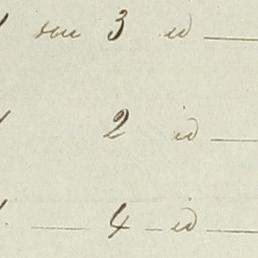 sou 3 id
2 id
4 id